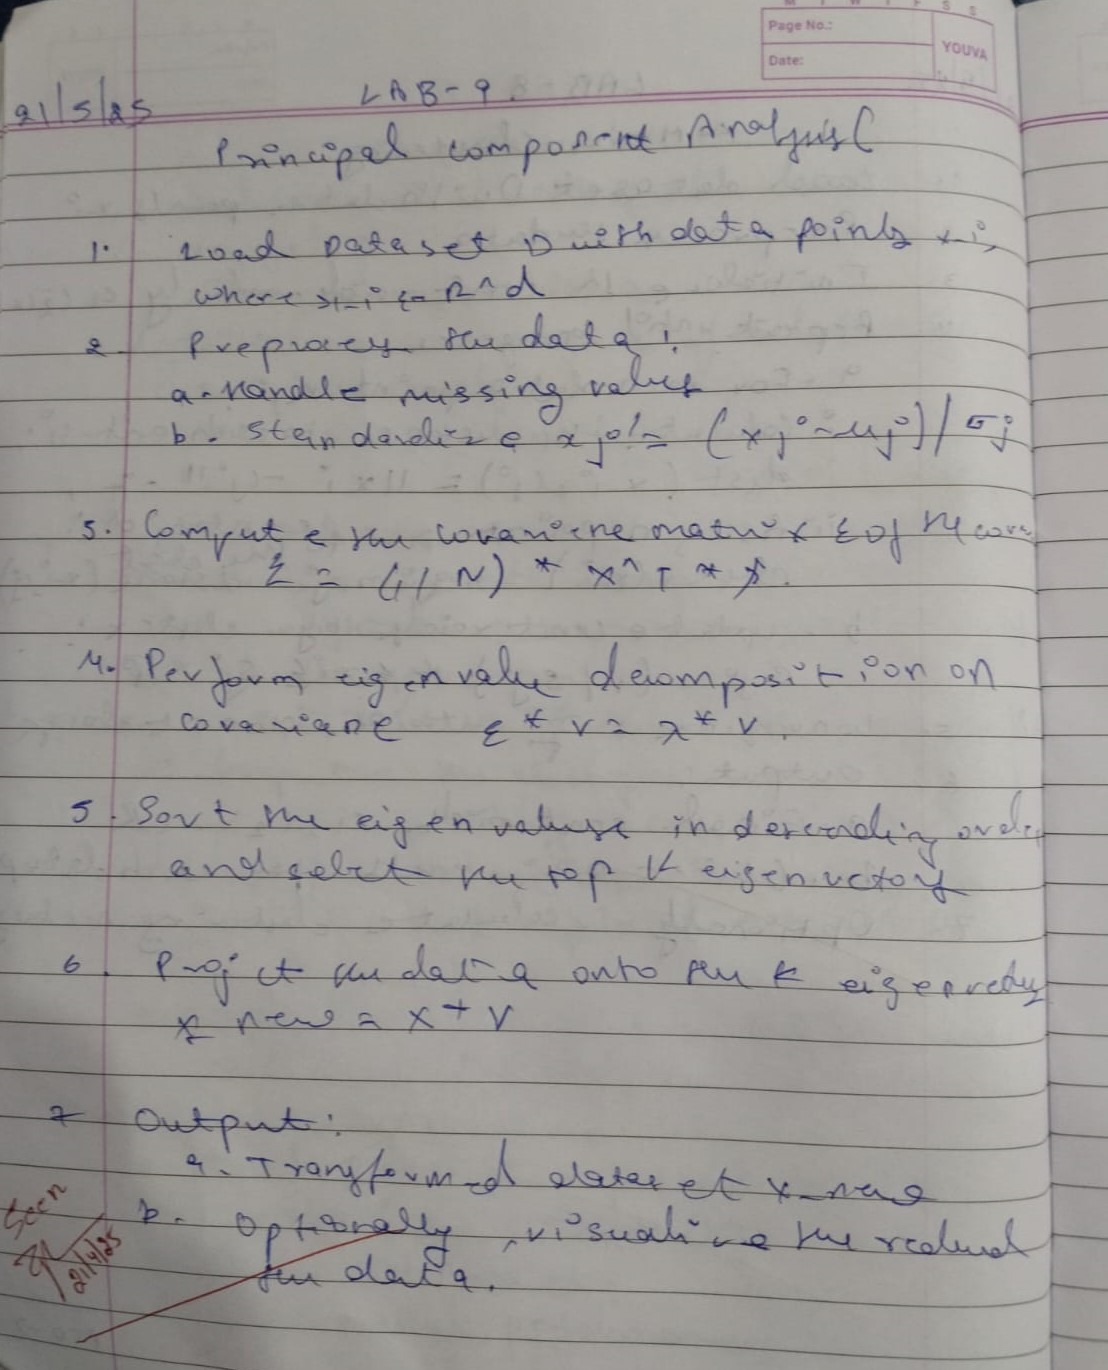 M T W T F S S
Page No.:
Date:
YOUVA
21/5/25
LAB-9.
Principal component Analysis (
1. Load Dataset D with data points x_i,
where x_i ∈ R^d
2. Preprocess the data:
a. Handle missing values
b. Standardize xj' = (xj - μj) / σj
3. Compute the covariance matrix Σ of
Σ = (1/N) * X^T * X.
4. Perform eigenvalue decomposition on
covariance Σ * v = λ * v.
5. Sort the eigenvalues in descending order
and select the top K eigenvectors
6. Project the data onto the K eigenvectors
X new = X * V
7 Output:
a. Transformed dataset X_new
b. Optionally, visualize the reduced
the data.
Seen
21/4/25